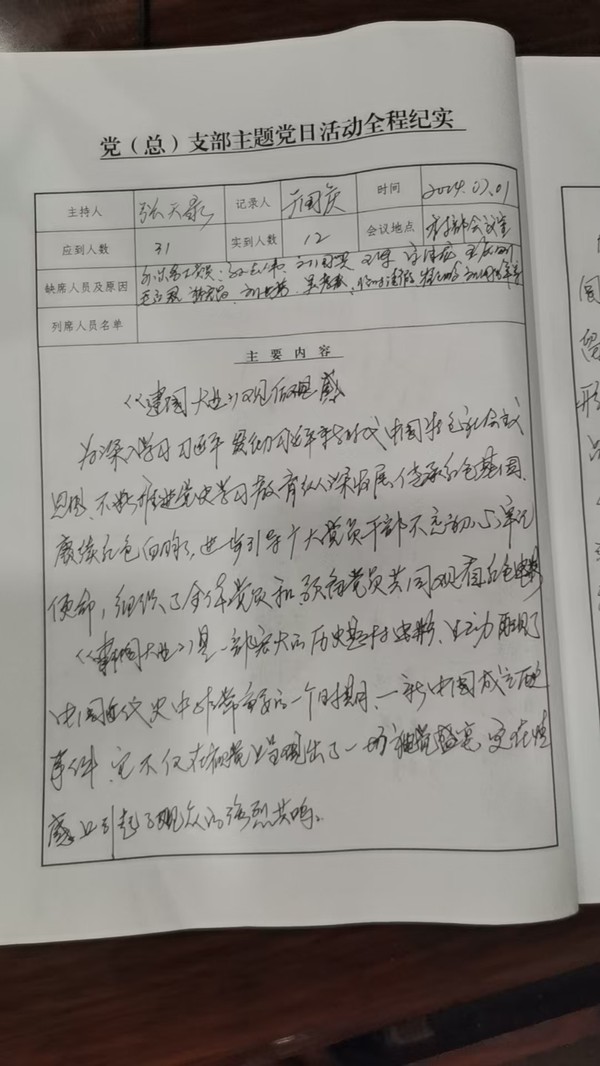 党（总）支部主题党日活动全程纪实
主持人 张天 记录人 时间 2024.07.01
应到人数 31 实到人数 12 会议地点 会议室
缺席人员及原因
列席人员名单
主要内容
《建国大业》观后观感
为深入学习习近平 贯彻习近平新时代中国特色社会主义
思想、不断推进党史学习教育纵深发展,传承红色基因、
赓续红色血脉,进一步引导广大党员干部不忘初心牢记
使命,组织了全体党员和预备党员共同观看红色电影
《建国大业》是一部宏大的历史题材电影、生动展现了
中国近代史中非常重要的一个时期、一新中国成立的
事件 它不仅在视觉上呈现出了一场视觉盛宴 更在情
感上引起了观众的强烈共鸣。